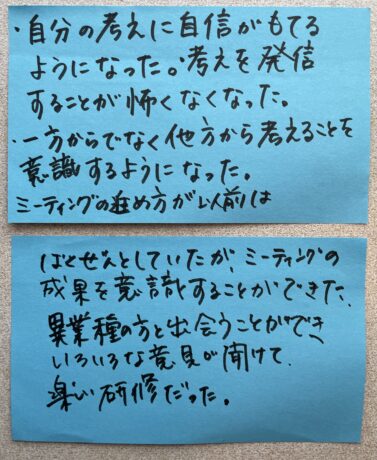 ・自分の考えに自信がもてる
ようになった。考えを発信
することが怖くなくなった。
・一方からでなく他方から考えることを
意識するようになった。
ミーティングの進め方が以前は
ばくぜんとしていたが、ミーティングの
成果を意識することができた。
異業種の方と出会うことができ
いろいろな意見が聞けて、
楽しい研修だった。